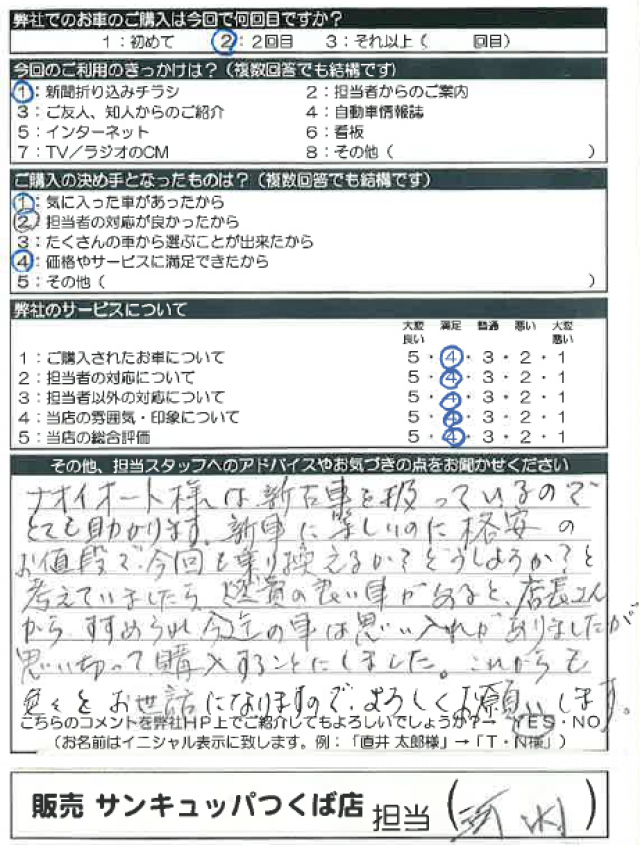 弊社でのお車のご購入は今回で何回目ですか？
1：初めて　2：2回目　3：それ以上（　　回目）
今回のご利用のきっかけは？（複数回答でも結構です）
1：新聞折り込みチラシ　2：担当者からのご案内
3：ご友人、知人からのご紹介　4：自動車情報誌
5：インターネット　6：看板
7：TV／ラジオのCM　8：その他（　　）
ご購入の決め手となったものは？（複数回答でも結構です）
1：気に入った車があったから
2：担当者の対応が良かったから
3：たくさんの車から選ぶことが出来たから
4：価格やサービスに満足できたから
5：その他（　　）
弊社のサービスについて
大変良い　満足　普通　悪い　大変悪い
1：ご購入されたお車について　5・4・3・2・1
2：担当者の対応について　5・4・3・2・1
3：担当者以外の対応について　5・4・3・2・1
4：当店の雰囲気・印象について　5・4・3・2・1
5：当店の総合評価　5・4・3・2・1
その他、担当スタッフへのアドバイスやお気づきの点をお聞かせください
ナオイオート様は新古車を扱っているので
とても助かります。新車に等しいのに格安の
お値段で、今回も乗り換えるか？どうしようか？と
考えていましたら、の良い車があると、店長さん
から、すすめられ今迄の車は思い入れがありましたが
思い切って購入することにしました。これからも
色々とお世話になりますので、よろしくお願いします。
こちらのコメントを弊社HP上でご紹介してもよろしいでしょうか？→ YES・NO
（お名前はイニシャル表示に致します。例：「直井 太郎様」→「T・N様」）
販売 サンキュッパつくば店 担当（　　）